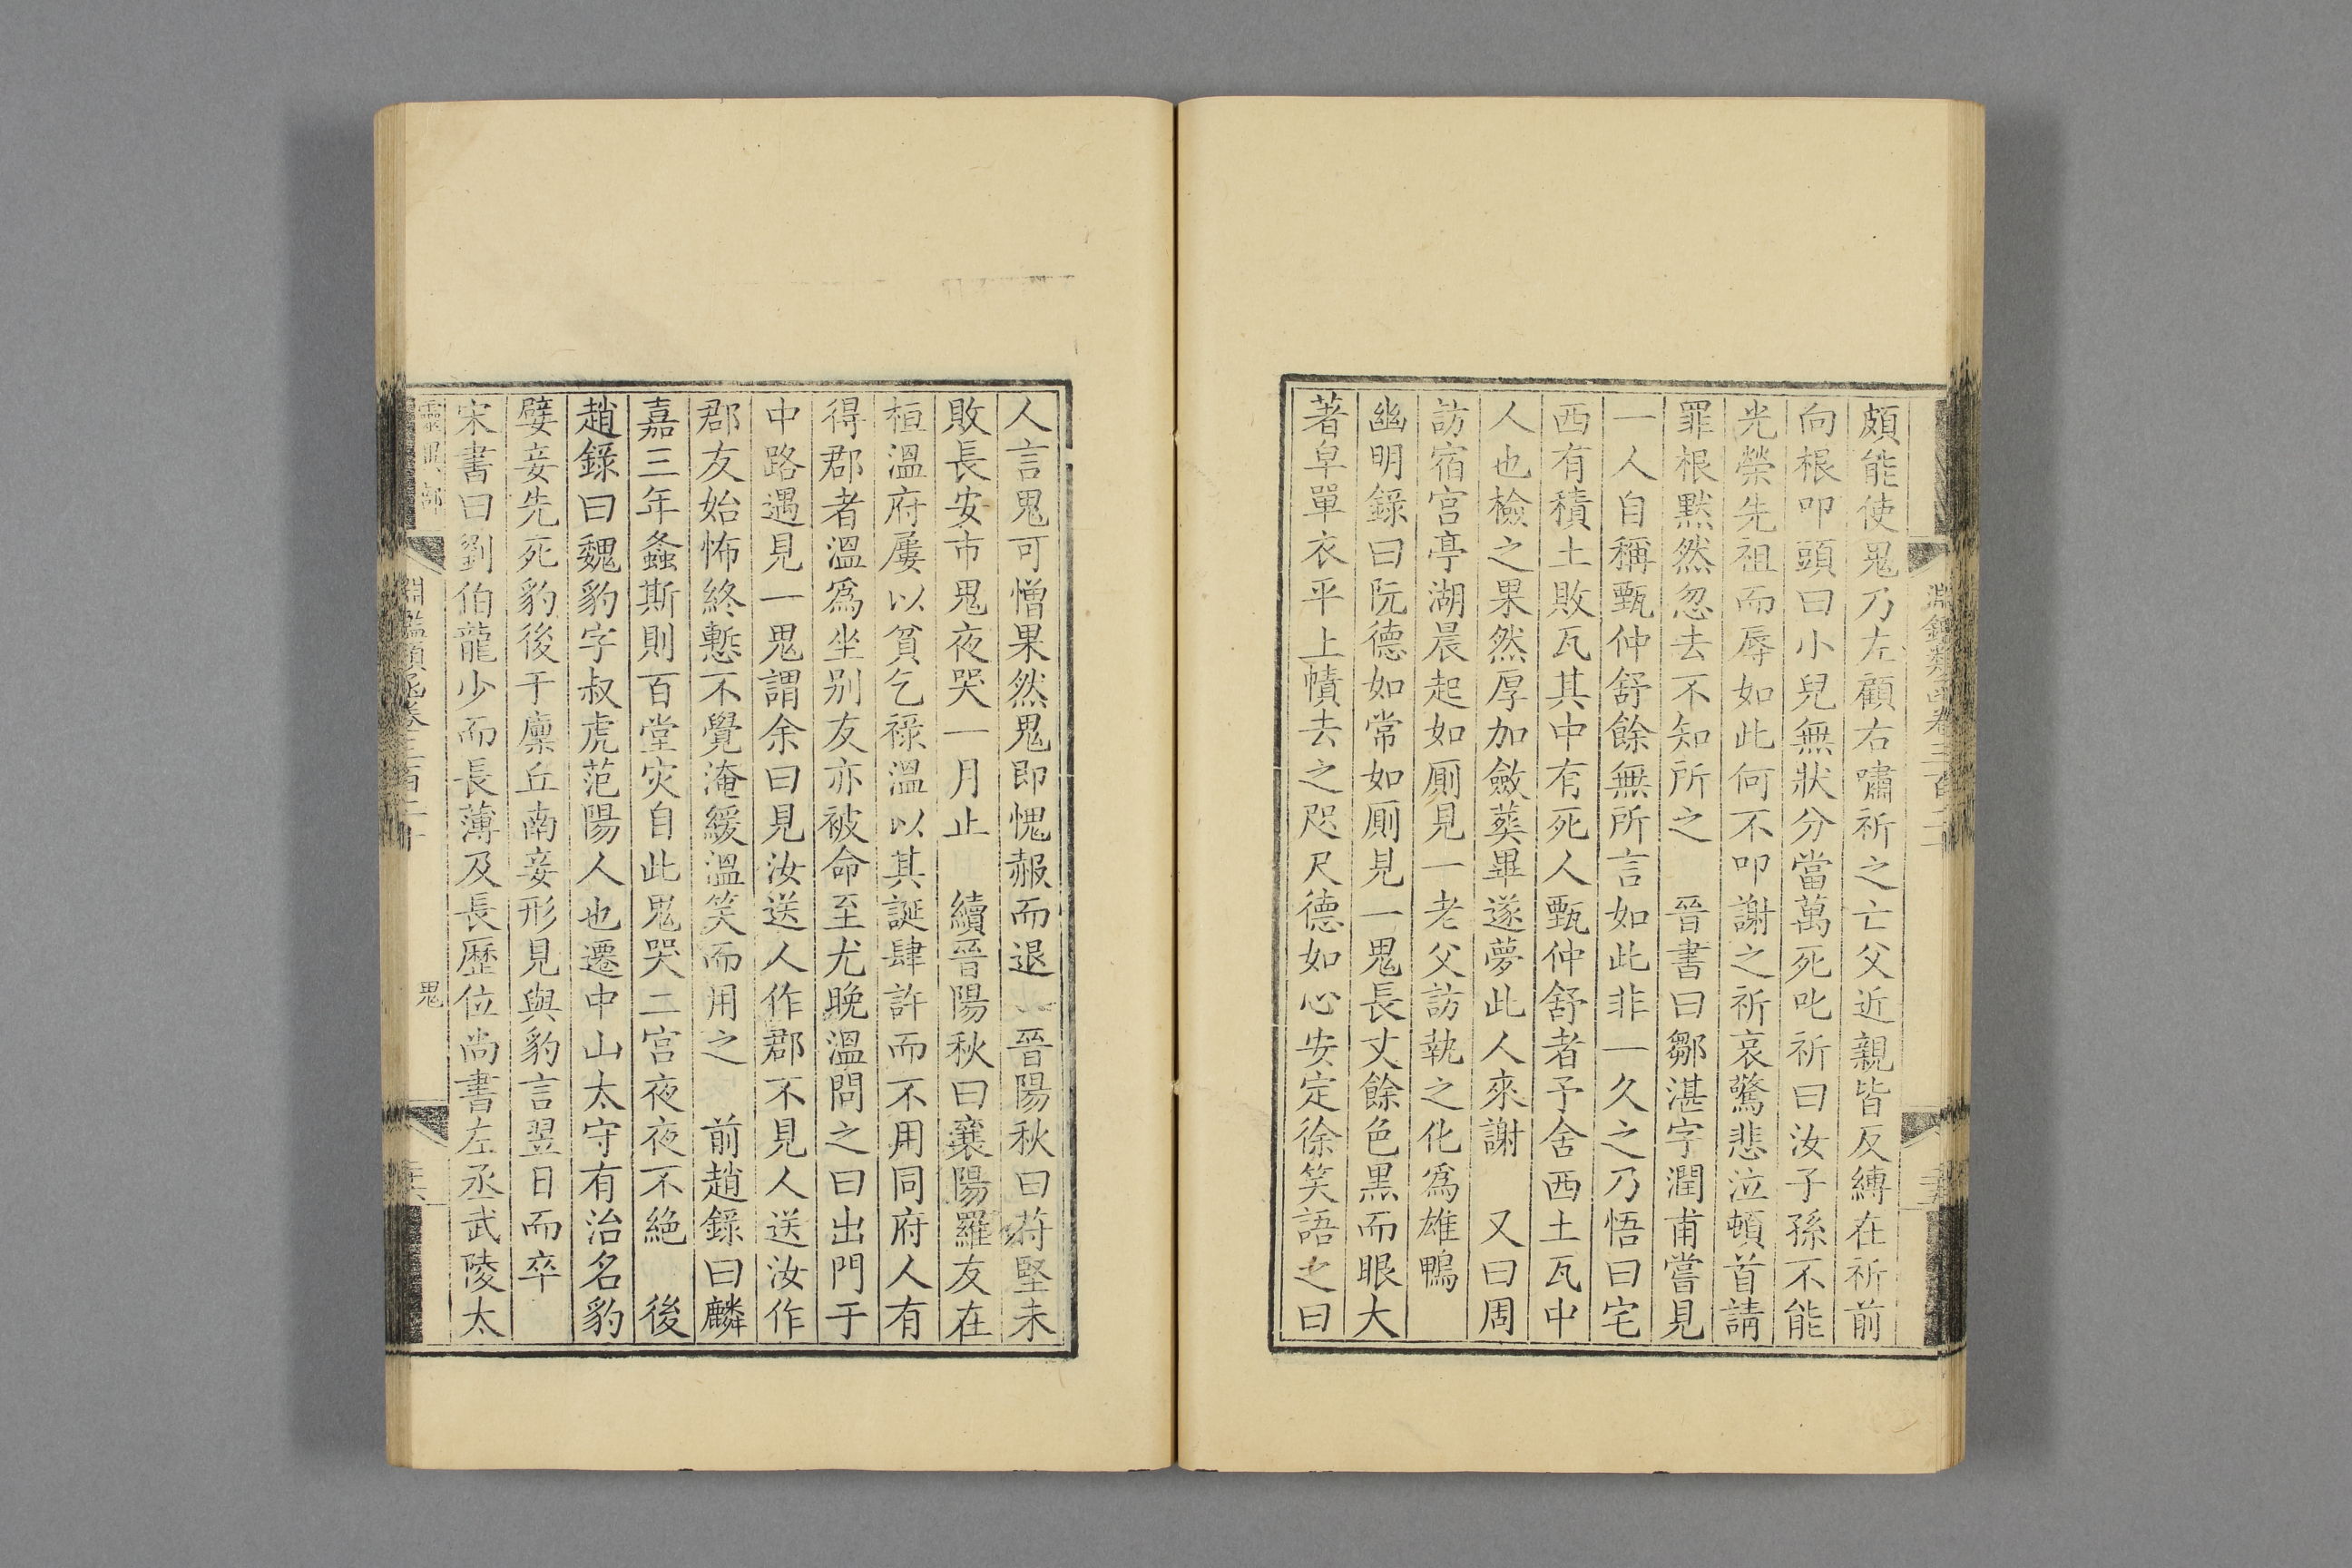 淵鑑類函卷三百二十
頗能使鬼乃左顧右嘯祈之亡父近親皆反縛在祈前
向根叩頭曰小兒無狀分當萬死叱祈曰汝子孫不能
光榮先祖而辱如此何不叩謝之祈哀驚悲泣頓首請
罪根黙然忽去不知所之　晉書曰鄒湛字潤甫嘗見
一人自稱甄仲舒餘無所言如此非一久之乃悟曰宅
西有積土敗瓦其中有死人甄仲舒者予舍西土瓦中
人也檢之果然厚加斂葬畢遂夢此人來謝　又曰周
訪宿宮亭湖晨起如厠見一老父訪執之化爲雄鴨
幽明錄曰阮德如常如厠見一鬼長丈餘色黒而眼大
著皁單衣平上幘去之咫尺德如心安定徐笑語之曰
人言鬼可憎果然鬼即愧赧而退　晉陽秋曰苻堅未
敗長安市鬼夜哭一月止　續晉陽秋曰襄陽羅友在
桓溫府屢以貧乞祿溫以其誕肆許而不用同府人有
得郡者溫爲坐别友亦被命至尤晚溫問之曰出門于
中路遇見一鬼謂余曰見汝送人作郡不見人送汝作
郡友始怖終慙不覺淹緩溫笑而用之　前趙錄曰麟
嘉三年螽斯則百堂灾自此鬼哭二宮夜夜不絶　後
趙錄曰魏豹字叔虎范陽人也遷中山太守有治名豹
嬖妾先死豹後于廪丘南妾形見與豹言翌日而卒
宋書曰劉伯龍少而長薄及長歷位尚書左丞武陵太
淵鑑類函卷三百二十
鬼